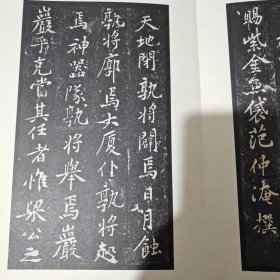 賜紫金魚袋范仲淹撰
天地閉孰將闢焉日月蝕
孰將廓焉大廈仆孰將起
焉神器隊孰將舉焉巖
巖乎克當其任者惟梁公之